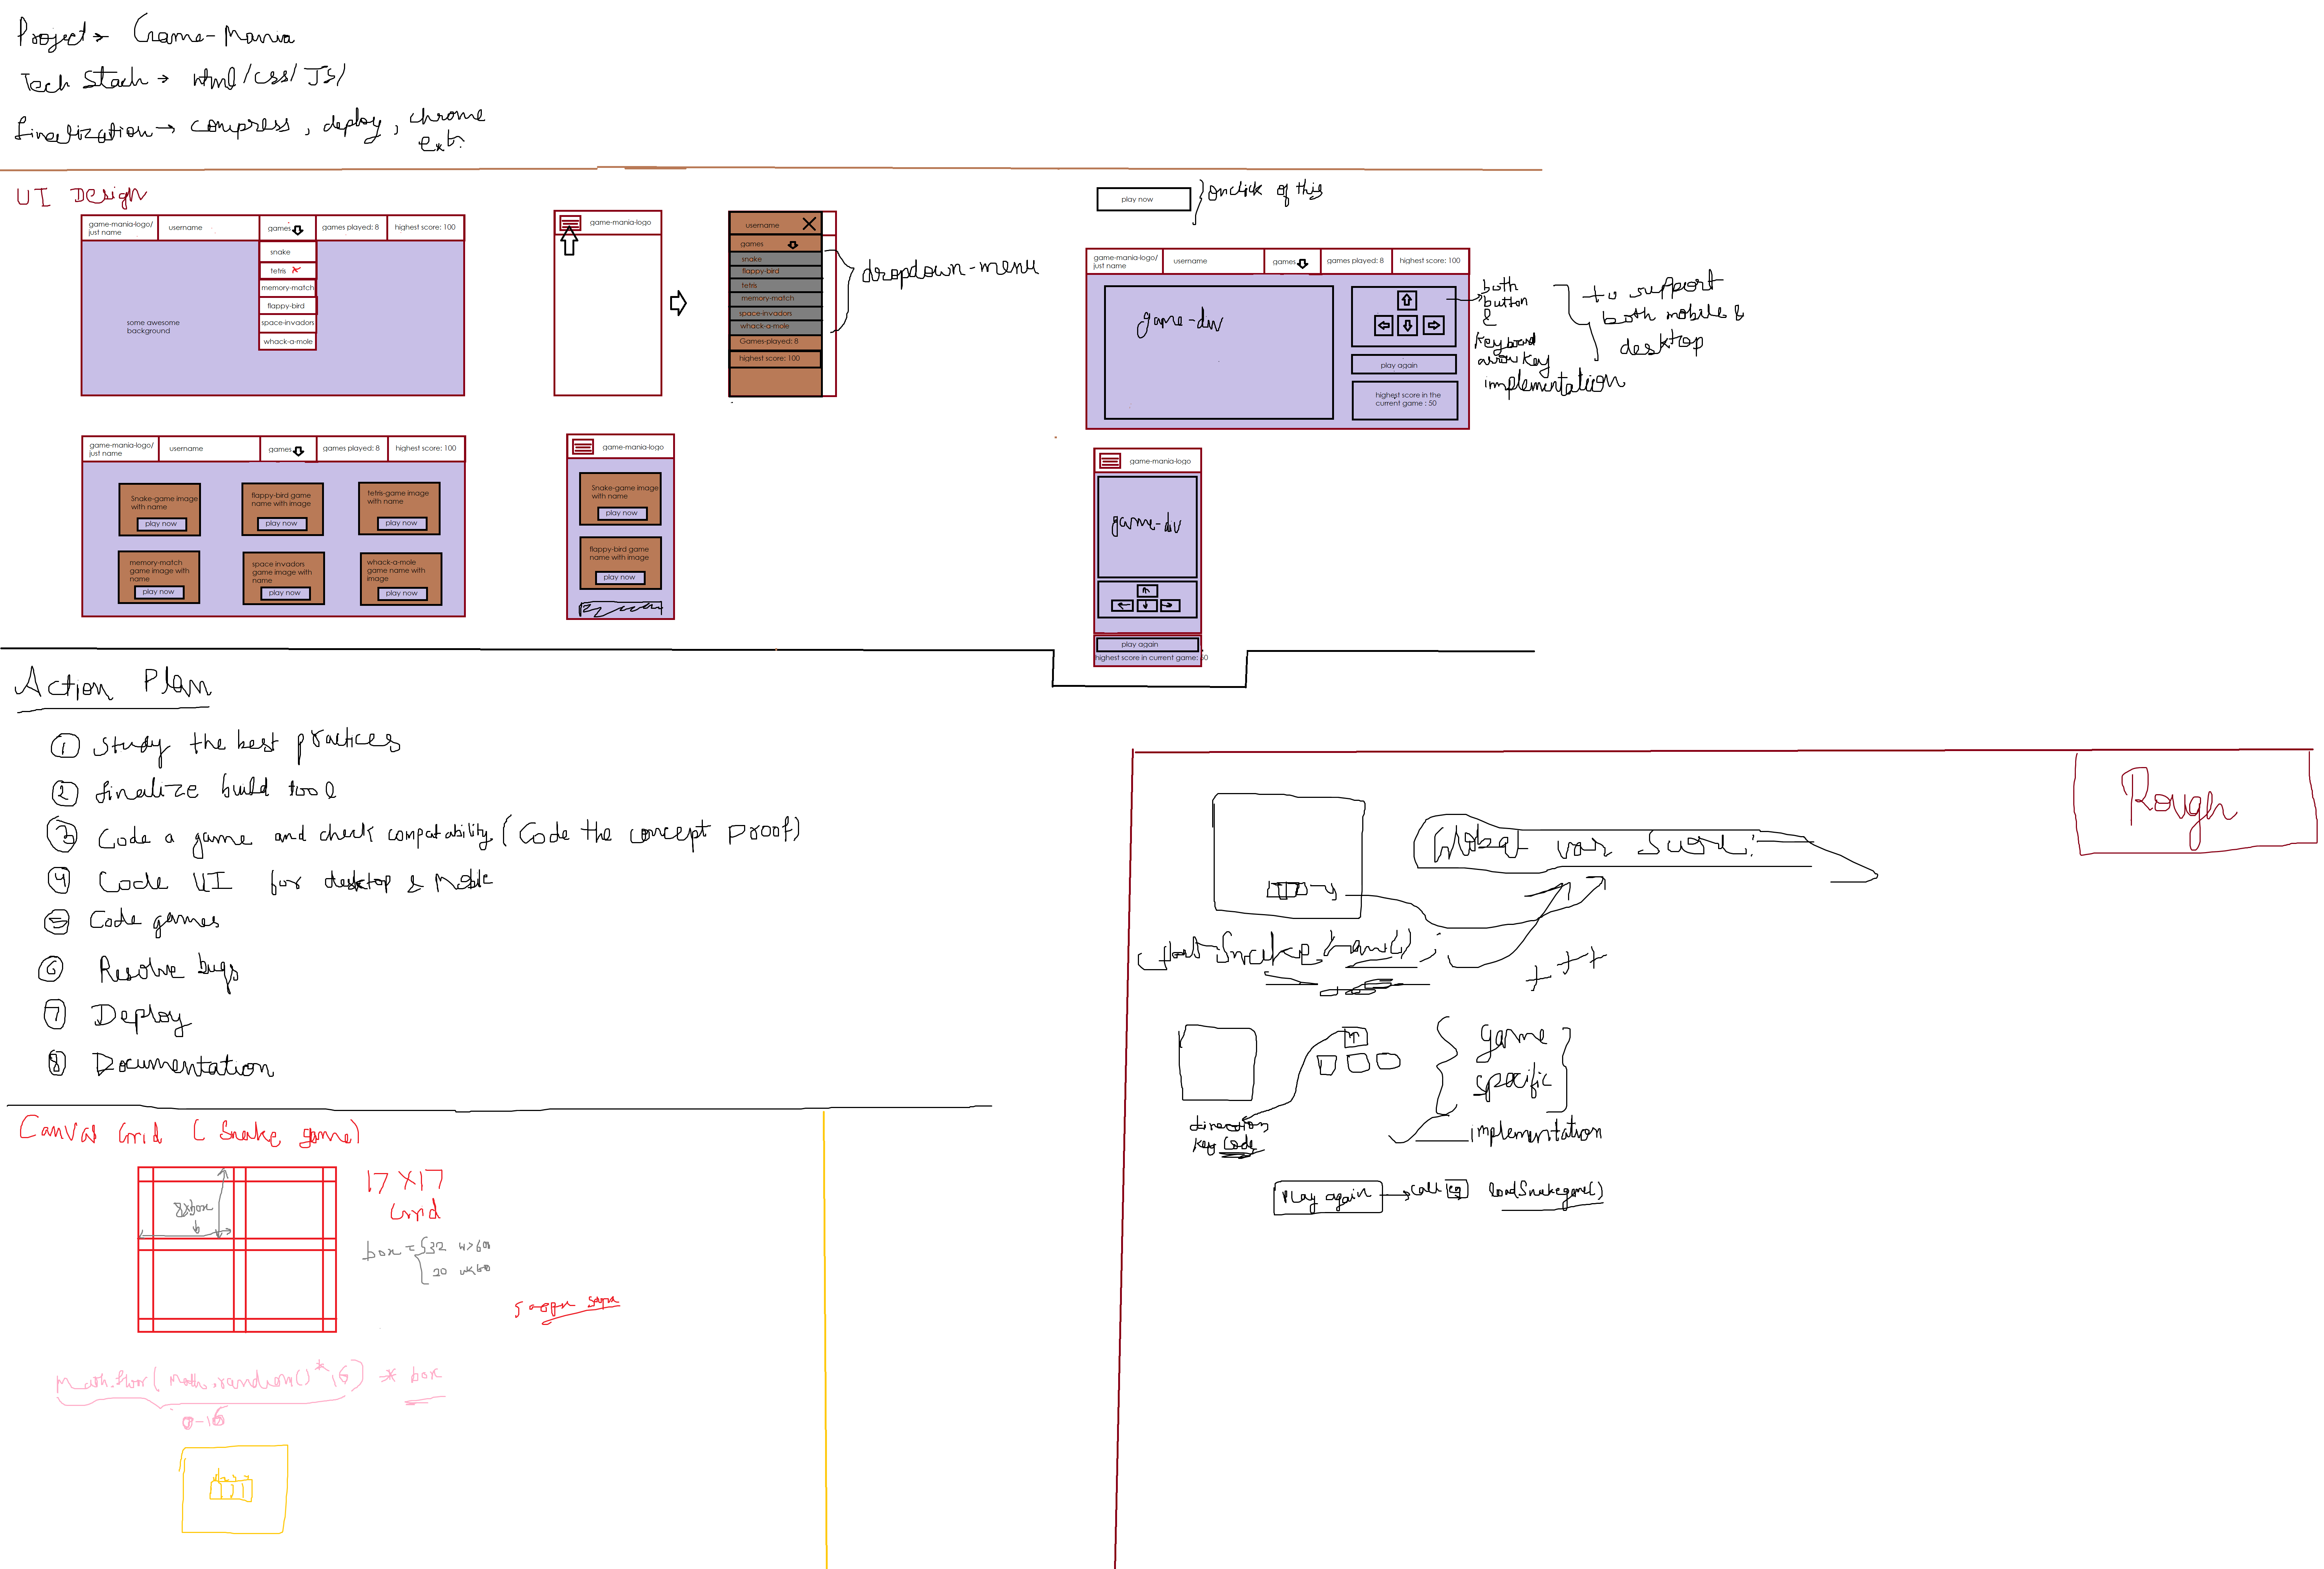 Project → Game-Mania
Tech Stack → Html/CSS/JS/
finalization → compress, deploy, chrome
ext.
UI Design
game-mania-logo/
just name
username
games
games played: 8
highest score: 100
snake
tetris
memory-match
flappy-bird
space-invadors
whack-a-mole
some awesome
background
game-mania-logo
username
games
snake
flappy-bird
tetris
memory-match
space-invadors
whack-a-mole
Games-played: 8
highest score: 100
dropdown-menu
play now
onclick of this
game-mania-logo/
just name
username
games
games played: 8
highest score: 100
game-div
play again
highest score in the
current game : 50
both
button
&
keyboard
arrow key
implementation
to support
both mobile &
desktop
game-mania-logo/
just name
username
games
games played: 8
highest score: 100
Snake-game image
with name
play now
flappy-bird game
name with image
play now
tetris-game image
with name
play now
memory-match
game image with
name
play now
space invadors
game image with
name
play now
whack-a-mole
game name with
image
play now
game-mania-logo
Snake-game image
with name
play now
flappy-bird game
name with image
play now
game-mania-logo
game-div
play again
highest score in current game: 50
Action Plan
1 Study the best practices
2 finalize build tool
3 Code a game and check compatability (Code the concept proof)
4 Code UI for desktop & Mobile
5 Code games
6 Resolve bugs
7 Deploy
8 Documentation
Rough
Global var
game
specific
implementation
direction
key code
Play again → call loadSnakegame()
Canvas Grid (Snake game)
8xbox
17 X 17
Grid
box = { 32
20
Math.floor(Math.random() * 16) * box
0-16